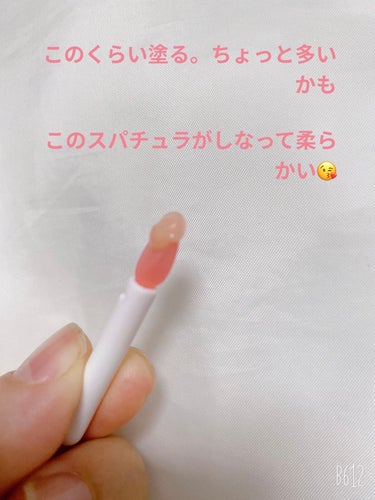 このくらい塗る。ちょっと多い
かも
このスパチュラがしなって柔ら
かい😘
B612